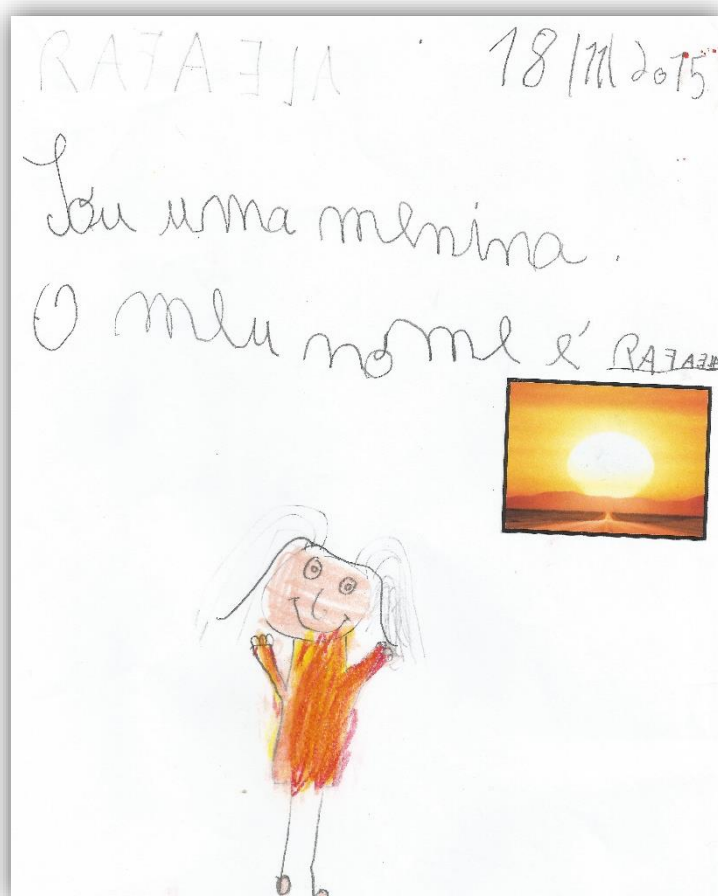 RAFAELA 18/11/2015
Sou uma menina.
O meu nome é RAFAELA